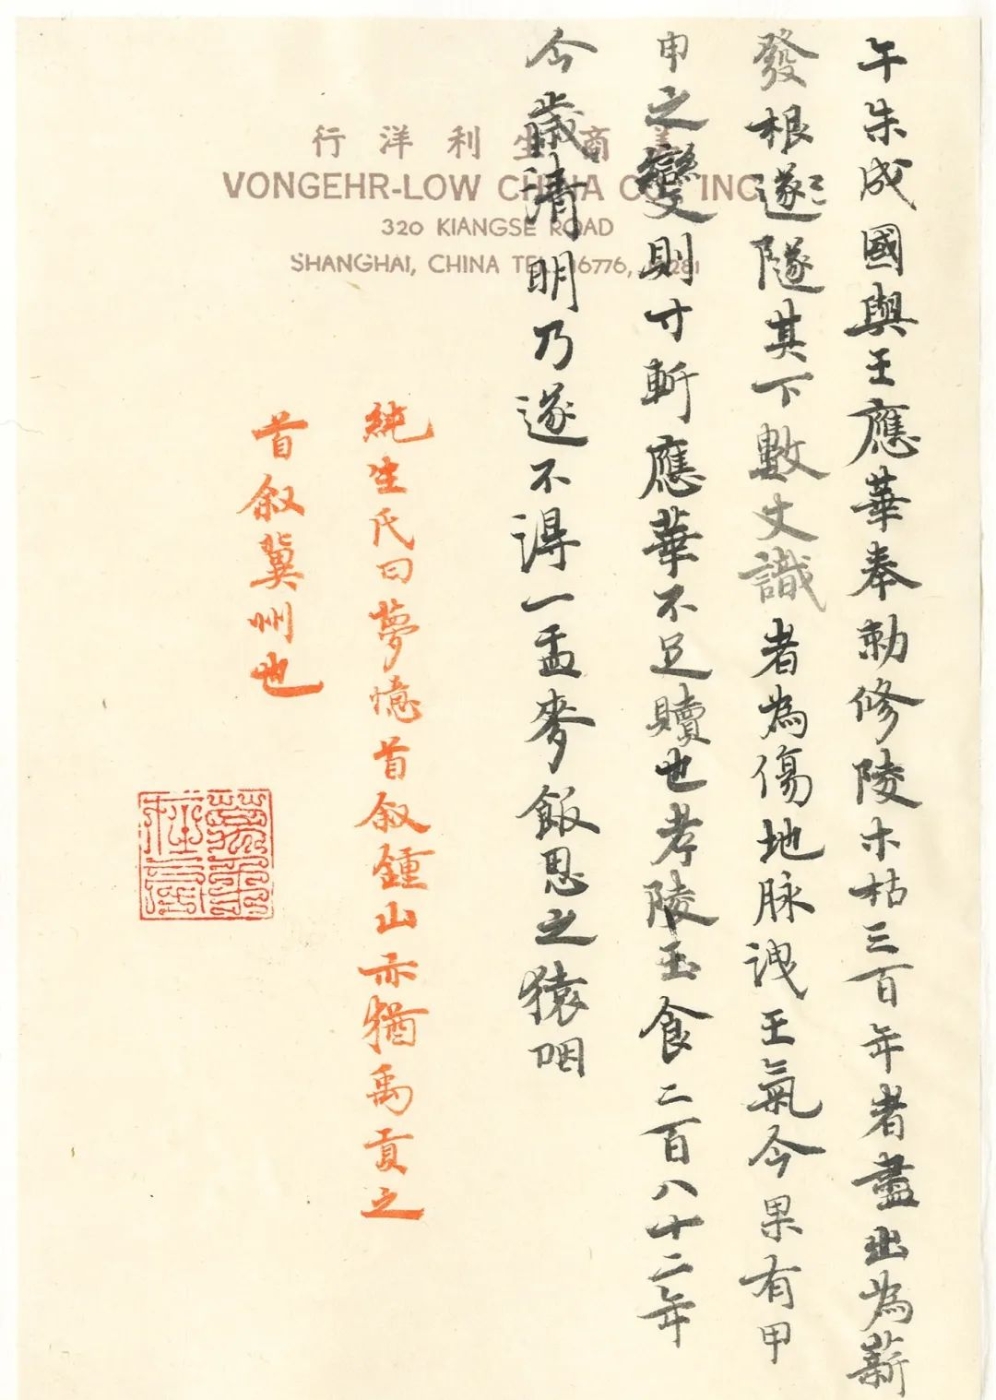 午朱成國與王應華奉勅修陵木枯三百年者盡出為薪
發根遂隧其下數丈識者為傷地脉洩王氣今果有甲
申之變則寸斬應華不足贖也孝陵玉食二百八十二年
今歲清明乃遂不得一盂麥飯思之猿咽
純生氏曰夢憶首叙鍾山亦猶禹貢之
首叙冀州也
行洋利生商
VONGEHR-LOW CHINA CO. INC
320 KIANGSE ROAD
SHANGHAI, CHINA TEL. 16776,